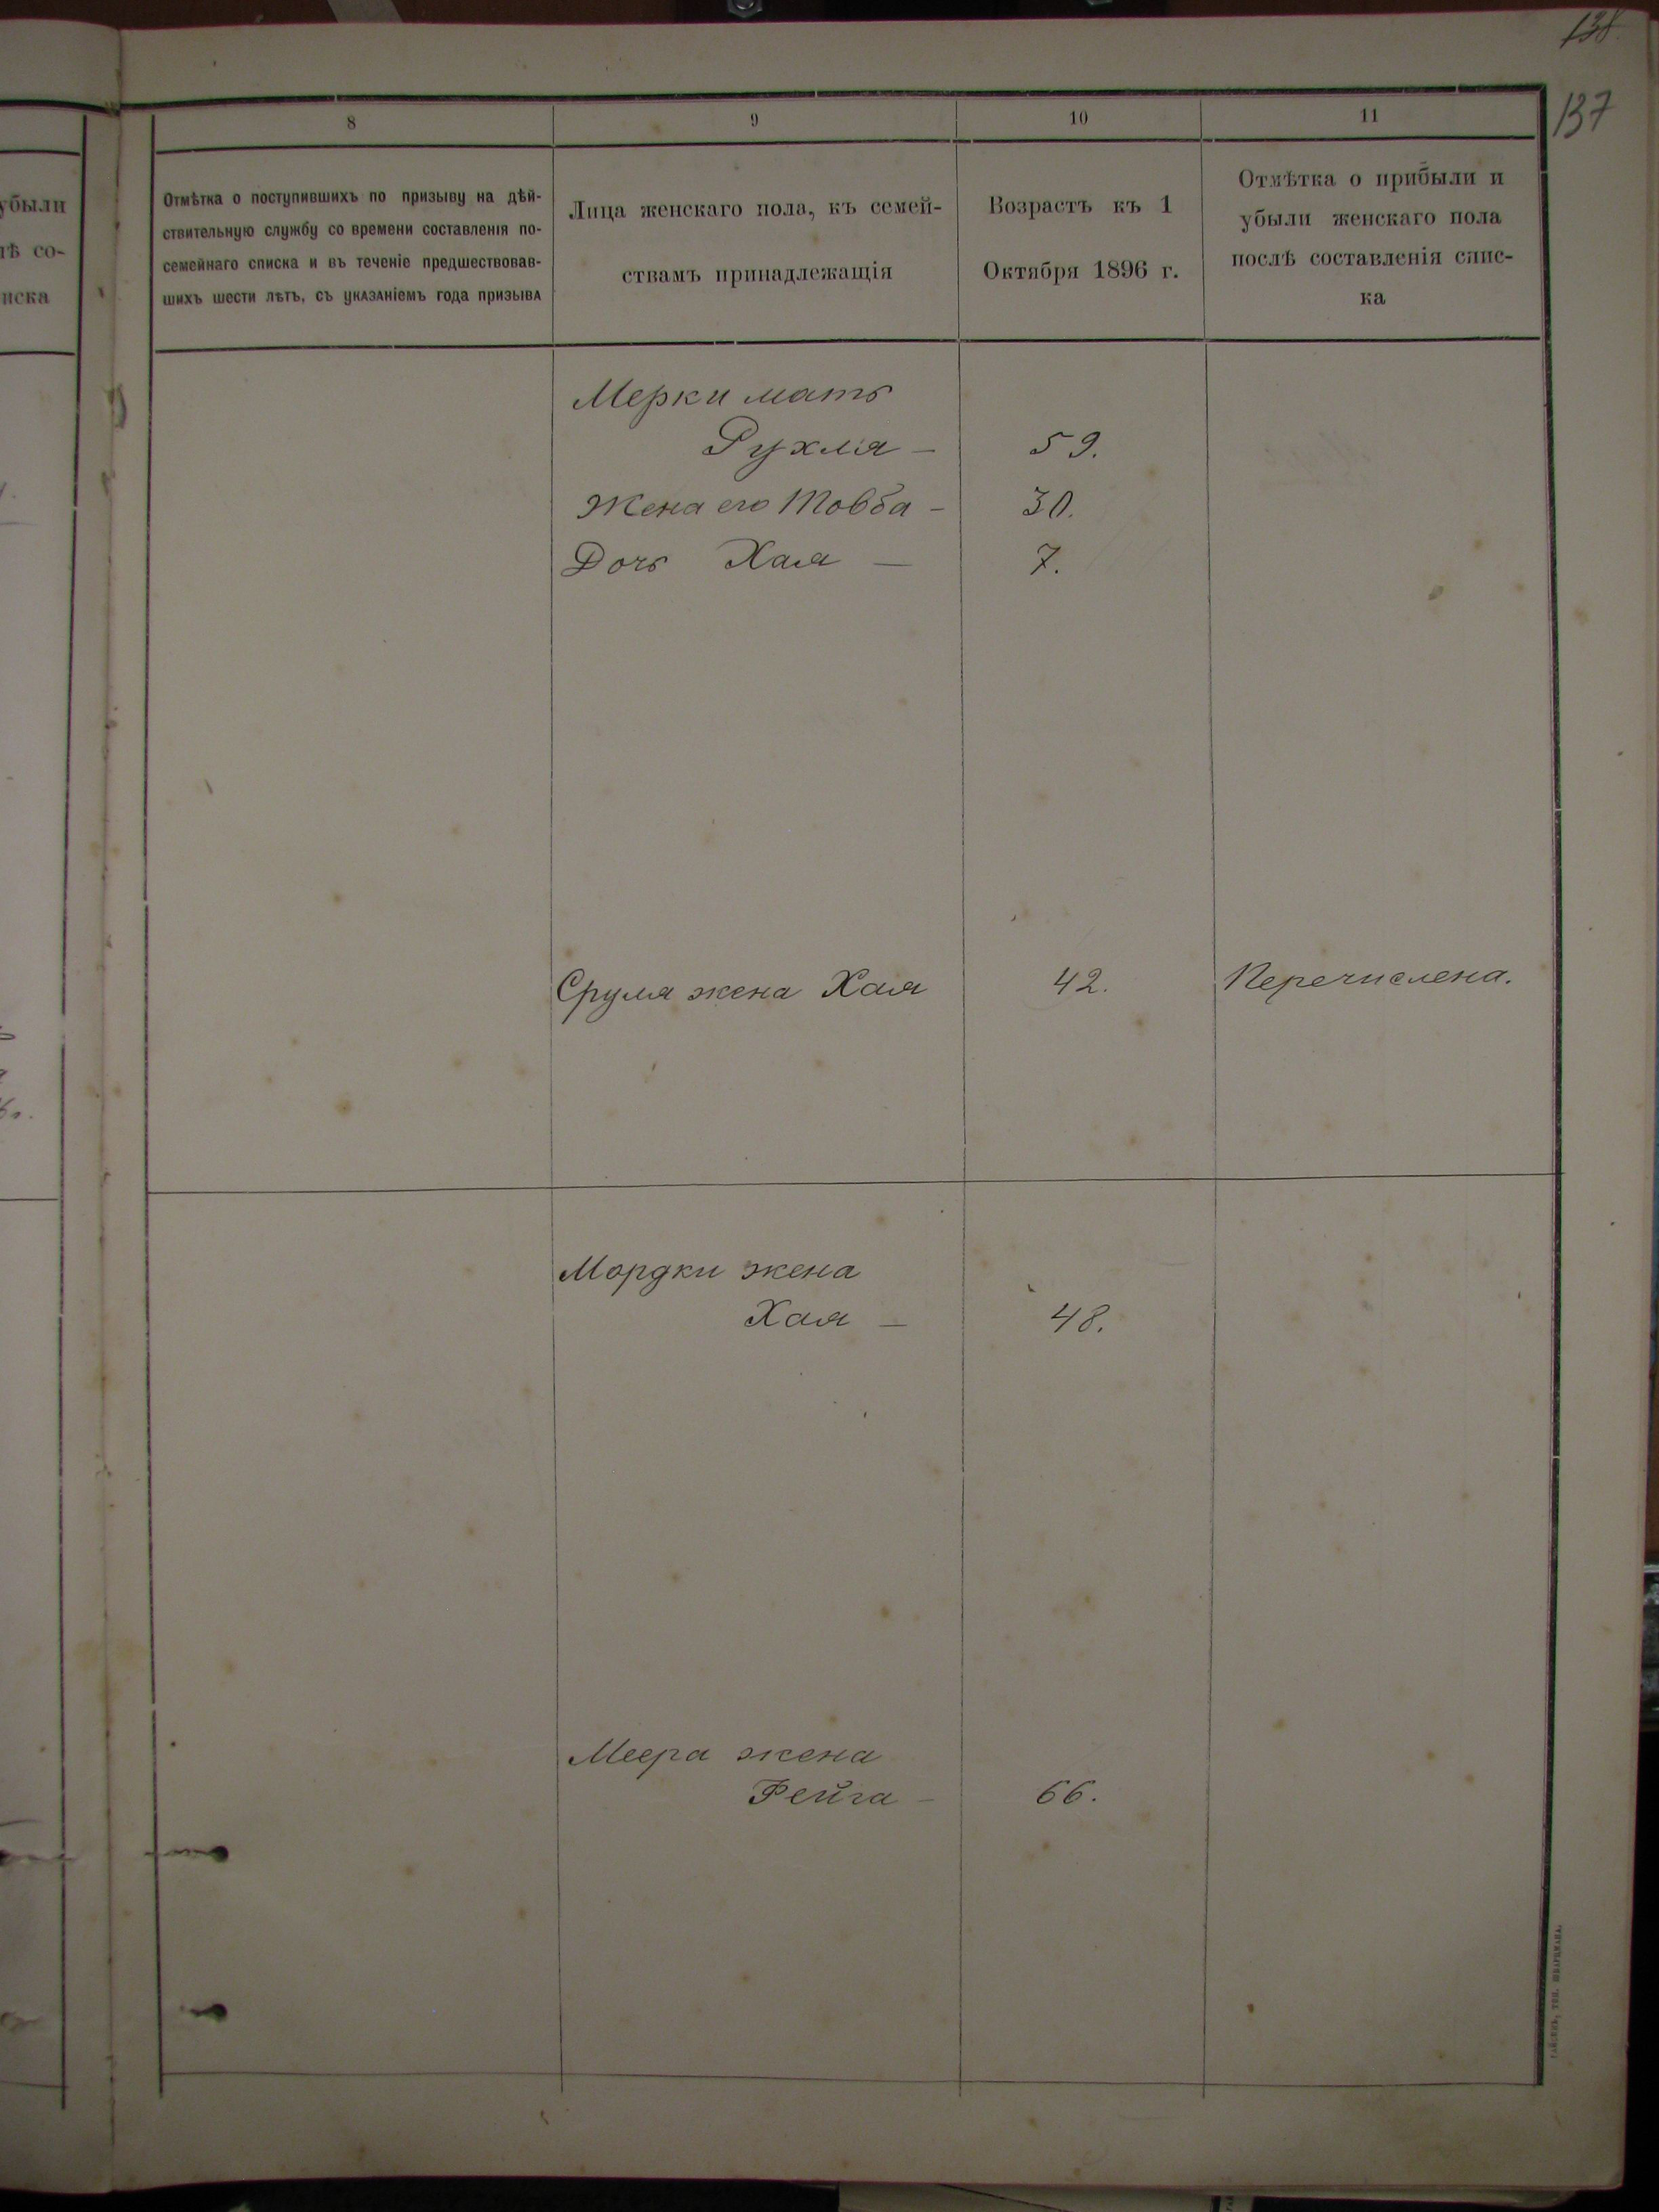 138
137
убыли
лѣ со-
иска
8
9
10
11
Отмѣтка о поступившихъ по призыву на дѣй-
ствительную службу со времени составленія по-
семейнаго списка и въ теченіе предшествовав-
шихъ шести лѣтъ, съ указаніемъ года призыва
Лица женскаго пола, къ семей-
ствамъ принадлежащія
Возрастъ къ 1
Октября 1896 г.
Отмѣтка о прибыли и
убыли женскаго пола
послѣ составленія спис-
ка
Мерки мать
Рухля — 59.
Жена его Товба — 30.
Дочь Хая — 7.
Сруля жена Хая 42. Перечислена.
Мордки жена
Хая — 48.
Меера жена
Фейга — 66.